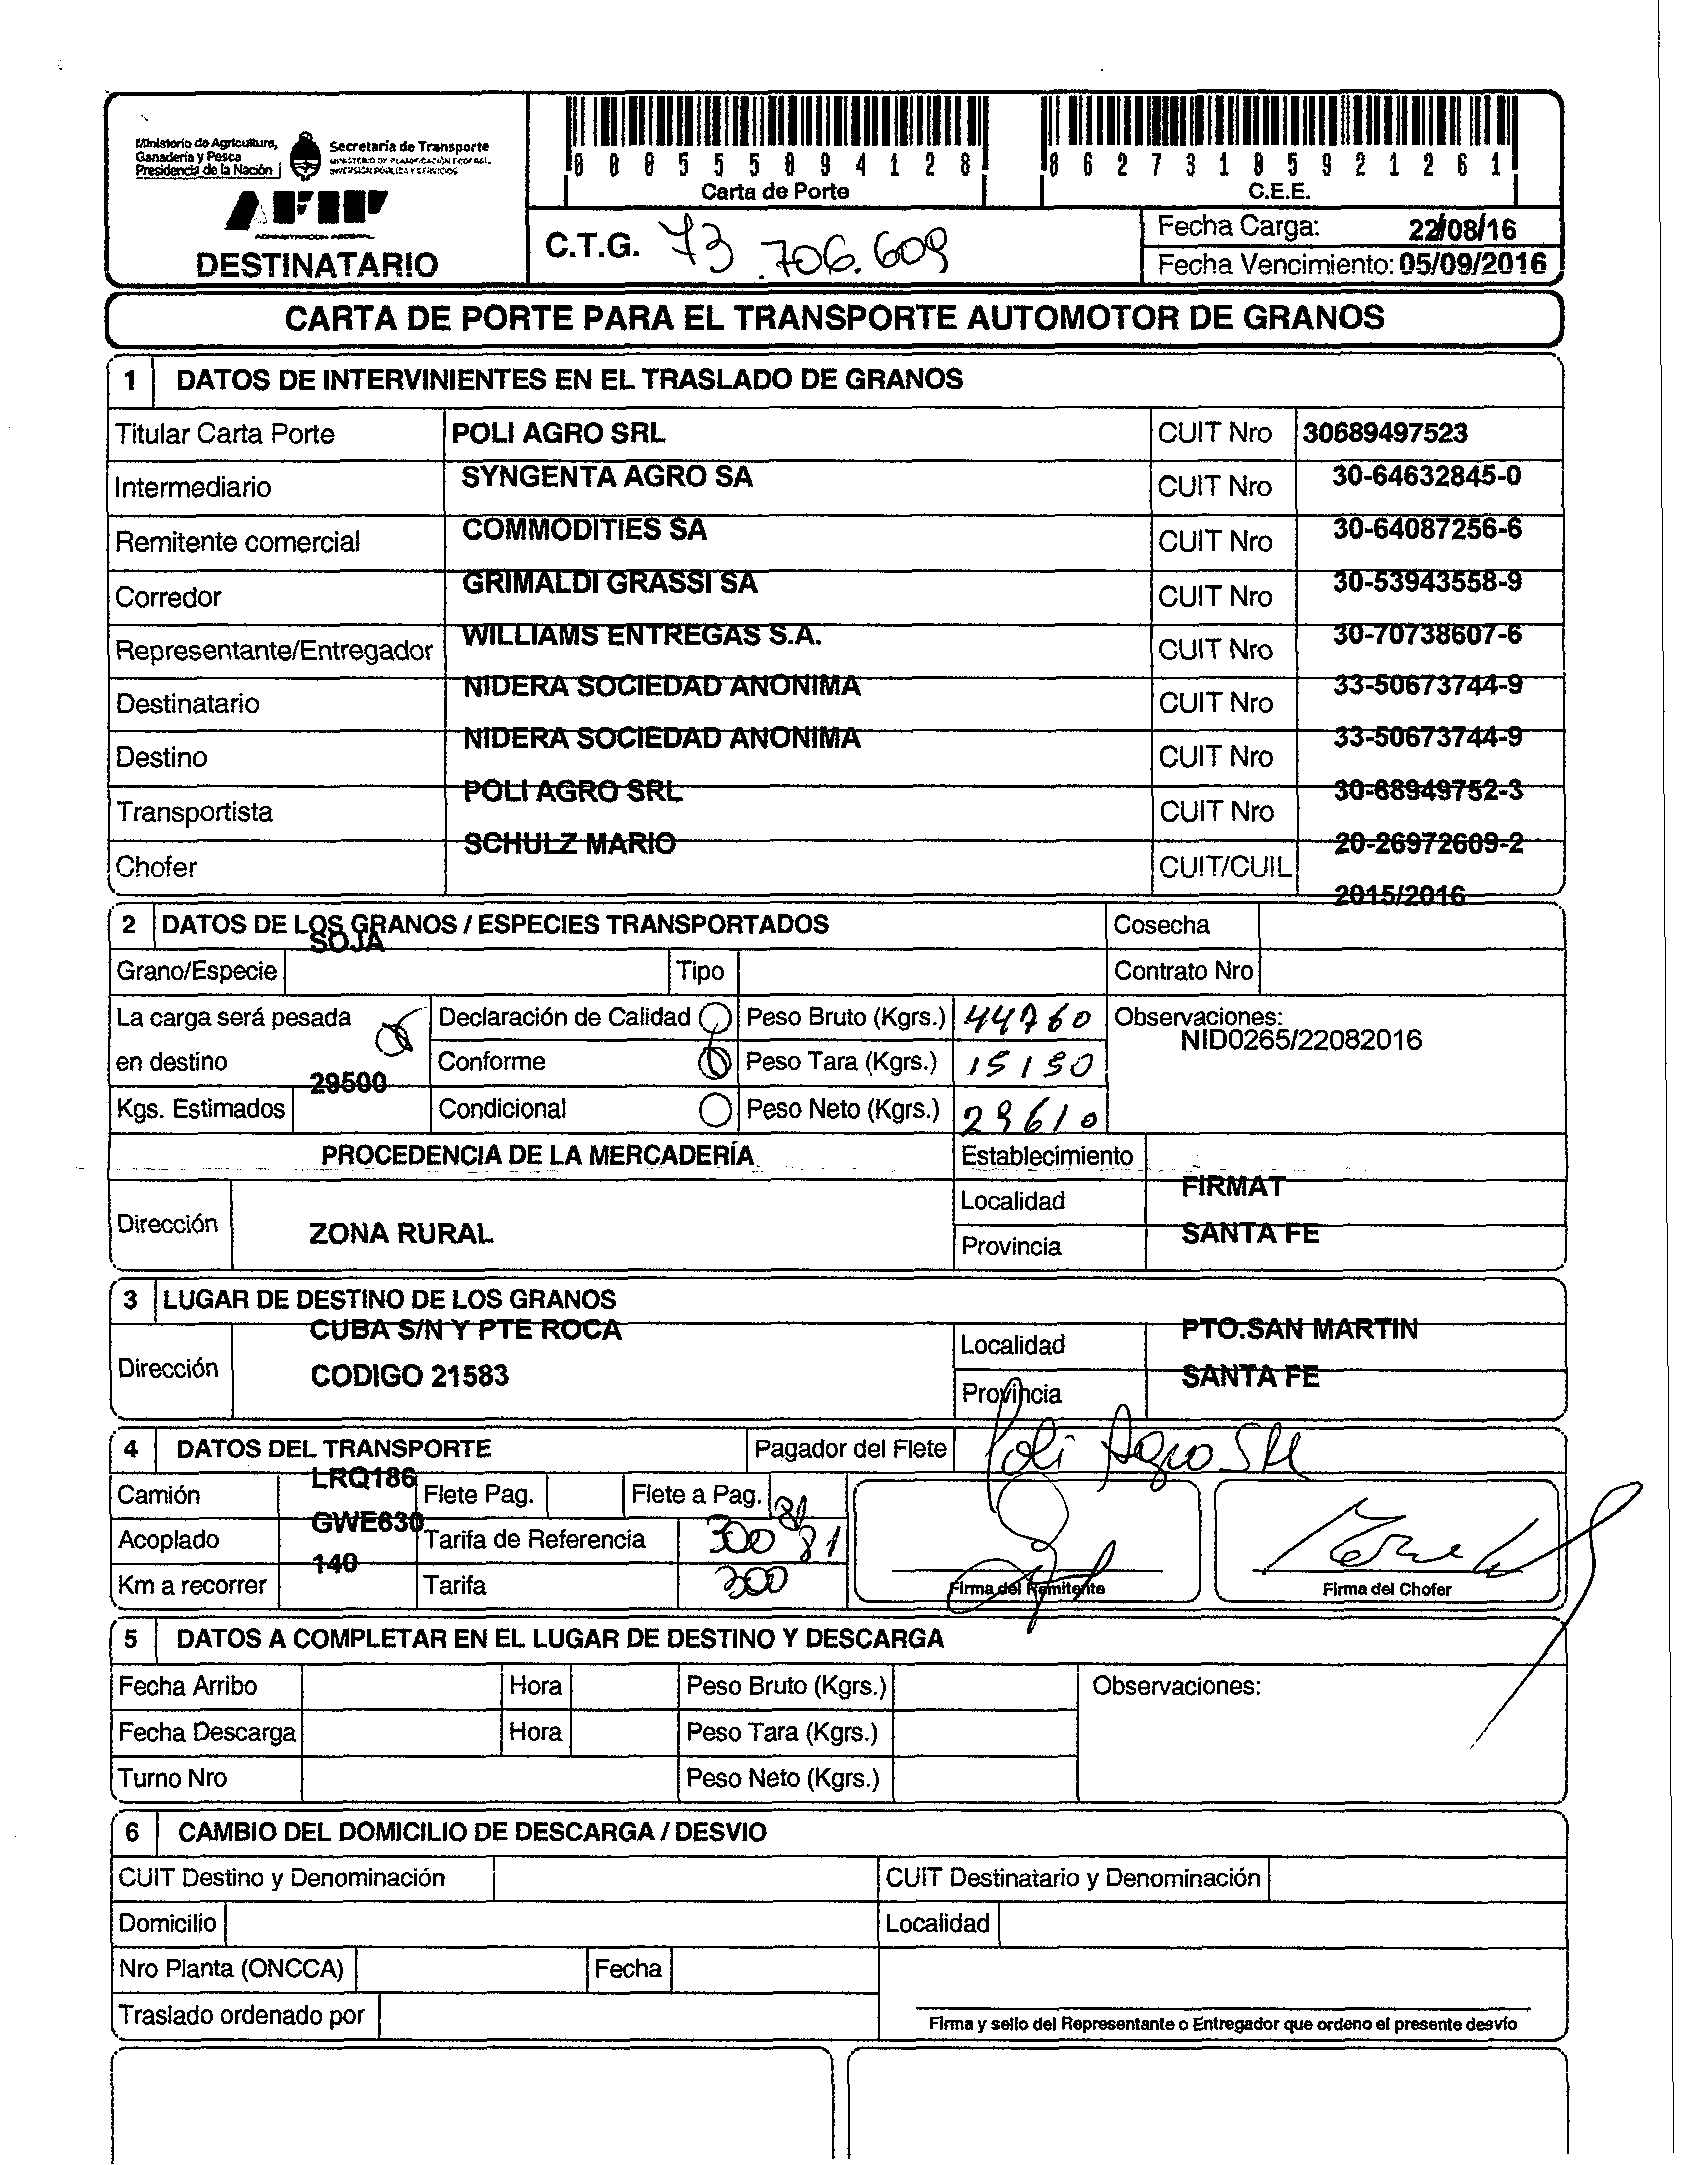 Ministerio de Agricultura, Ganadería y Pesca Presidencia de la Nación
Secretaría de Transporte
AFIP
DESTINATARIO
000555094128
Carta de Porte
86273105921261
C.E.E.
C.T.G. 73.706.609
Fecha Carga: 22/08/16
Fecha Vencimiento: 05/09/2016
CARTA DE PORTE PARA EL TRANSPORTE AUTOMOTOR DE GRANOS
1 DATOS DE INTERVINIENTES EN EL TRASLADO DE GRANOS
Titular Carta Porte POLI AGRO SRL CUIT Nro 30689497523
Intermediario SYNGENTA AGRO SA CUIT Nro 30-64632845-0
Remitente comercial COMMODITIES SA CUIT Nro 30-64087256-6
Corredor GRIMALDI GRASSI SA CUIT Nro 30-53943558-9
Representante/Entregador WILLIAMS ENTREGAS S.A. CUIT Nro 30-70738607-6
Destinatario NIDERA SOCIEDAD ANONIMA CUIT Nro 33-50673744-9
Destino NIDERA SOCIEDAD ANONIMA CUIT Nro 33-50673744-9
Transportista POLI AGRO SRL CUIT Nro 30-68949752-3
Chofer SCHULZ MARIO CUIT/CUIL 20-26972609-2
2 DATOS DE LOS GRANOS / ESPECIES TRANSPORTADOS Cosecha 2015/2016
Grano/Especie SOJA Tipo Contrato Nro
La carga será pesada en destino
Declaración de Calidad Peso Bruto (Kgrs.) 44760 Observaciones:
NID0265/22082016
Conforme Peso Tara (Kgrs.) 15150
Kgs. Estimados 29500 Condicional Peso Neto (Kgrs.) 29610
PROCEDENCIA DE LA MERCADERÍA Establecimiento
Dirección ZONA RURAL
Localidad FIRMAT
Provincia SANTA FE
3 LUGAR DE DESTINO DE LOS GRANOS
Dirección CUBA S/N Y PTE ROCA
CODIGO 21583
Localidad PTO.SAN MARTIN
Provincia SANTA FE
4 DATOS DEL TRANSPORTE Pagador del Flete Poli Agro SRL
Camión LRQ186 Flete Pag. Flete a Pag.
Acoplado GWE630 Tarifa de Referencia 300 81
Km a recorrer 140 Tarifa 300
Firma del Remitente
Firma del Chofer
5 DATOS A COMPLETAR EN EL LUGAR DE DESTINO Y DESCARGA
Fecha Arribo Hora Peso Bruto (Kgrs.) Observaciones:
Fecha Descarga Hora Peso Tara (Kgrs.)
Turno Nro Peso Neto (Kgrs.)
6 CAMBIO DEL DOMICILIO DE DESCARGA / DESVIO
CUIT Destino y Denominación CUIT Destinatario y Denominación
Domicilio Localidad
Nro Planta (ONCCA) Fecha
Traslado ordenado por
Firma y sello del Representante o Entregador que ordeno el presente desvío